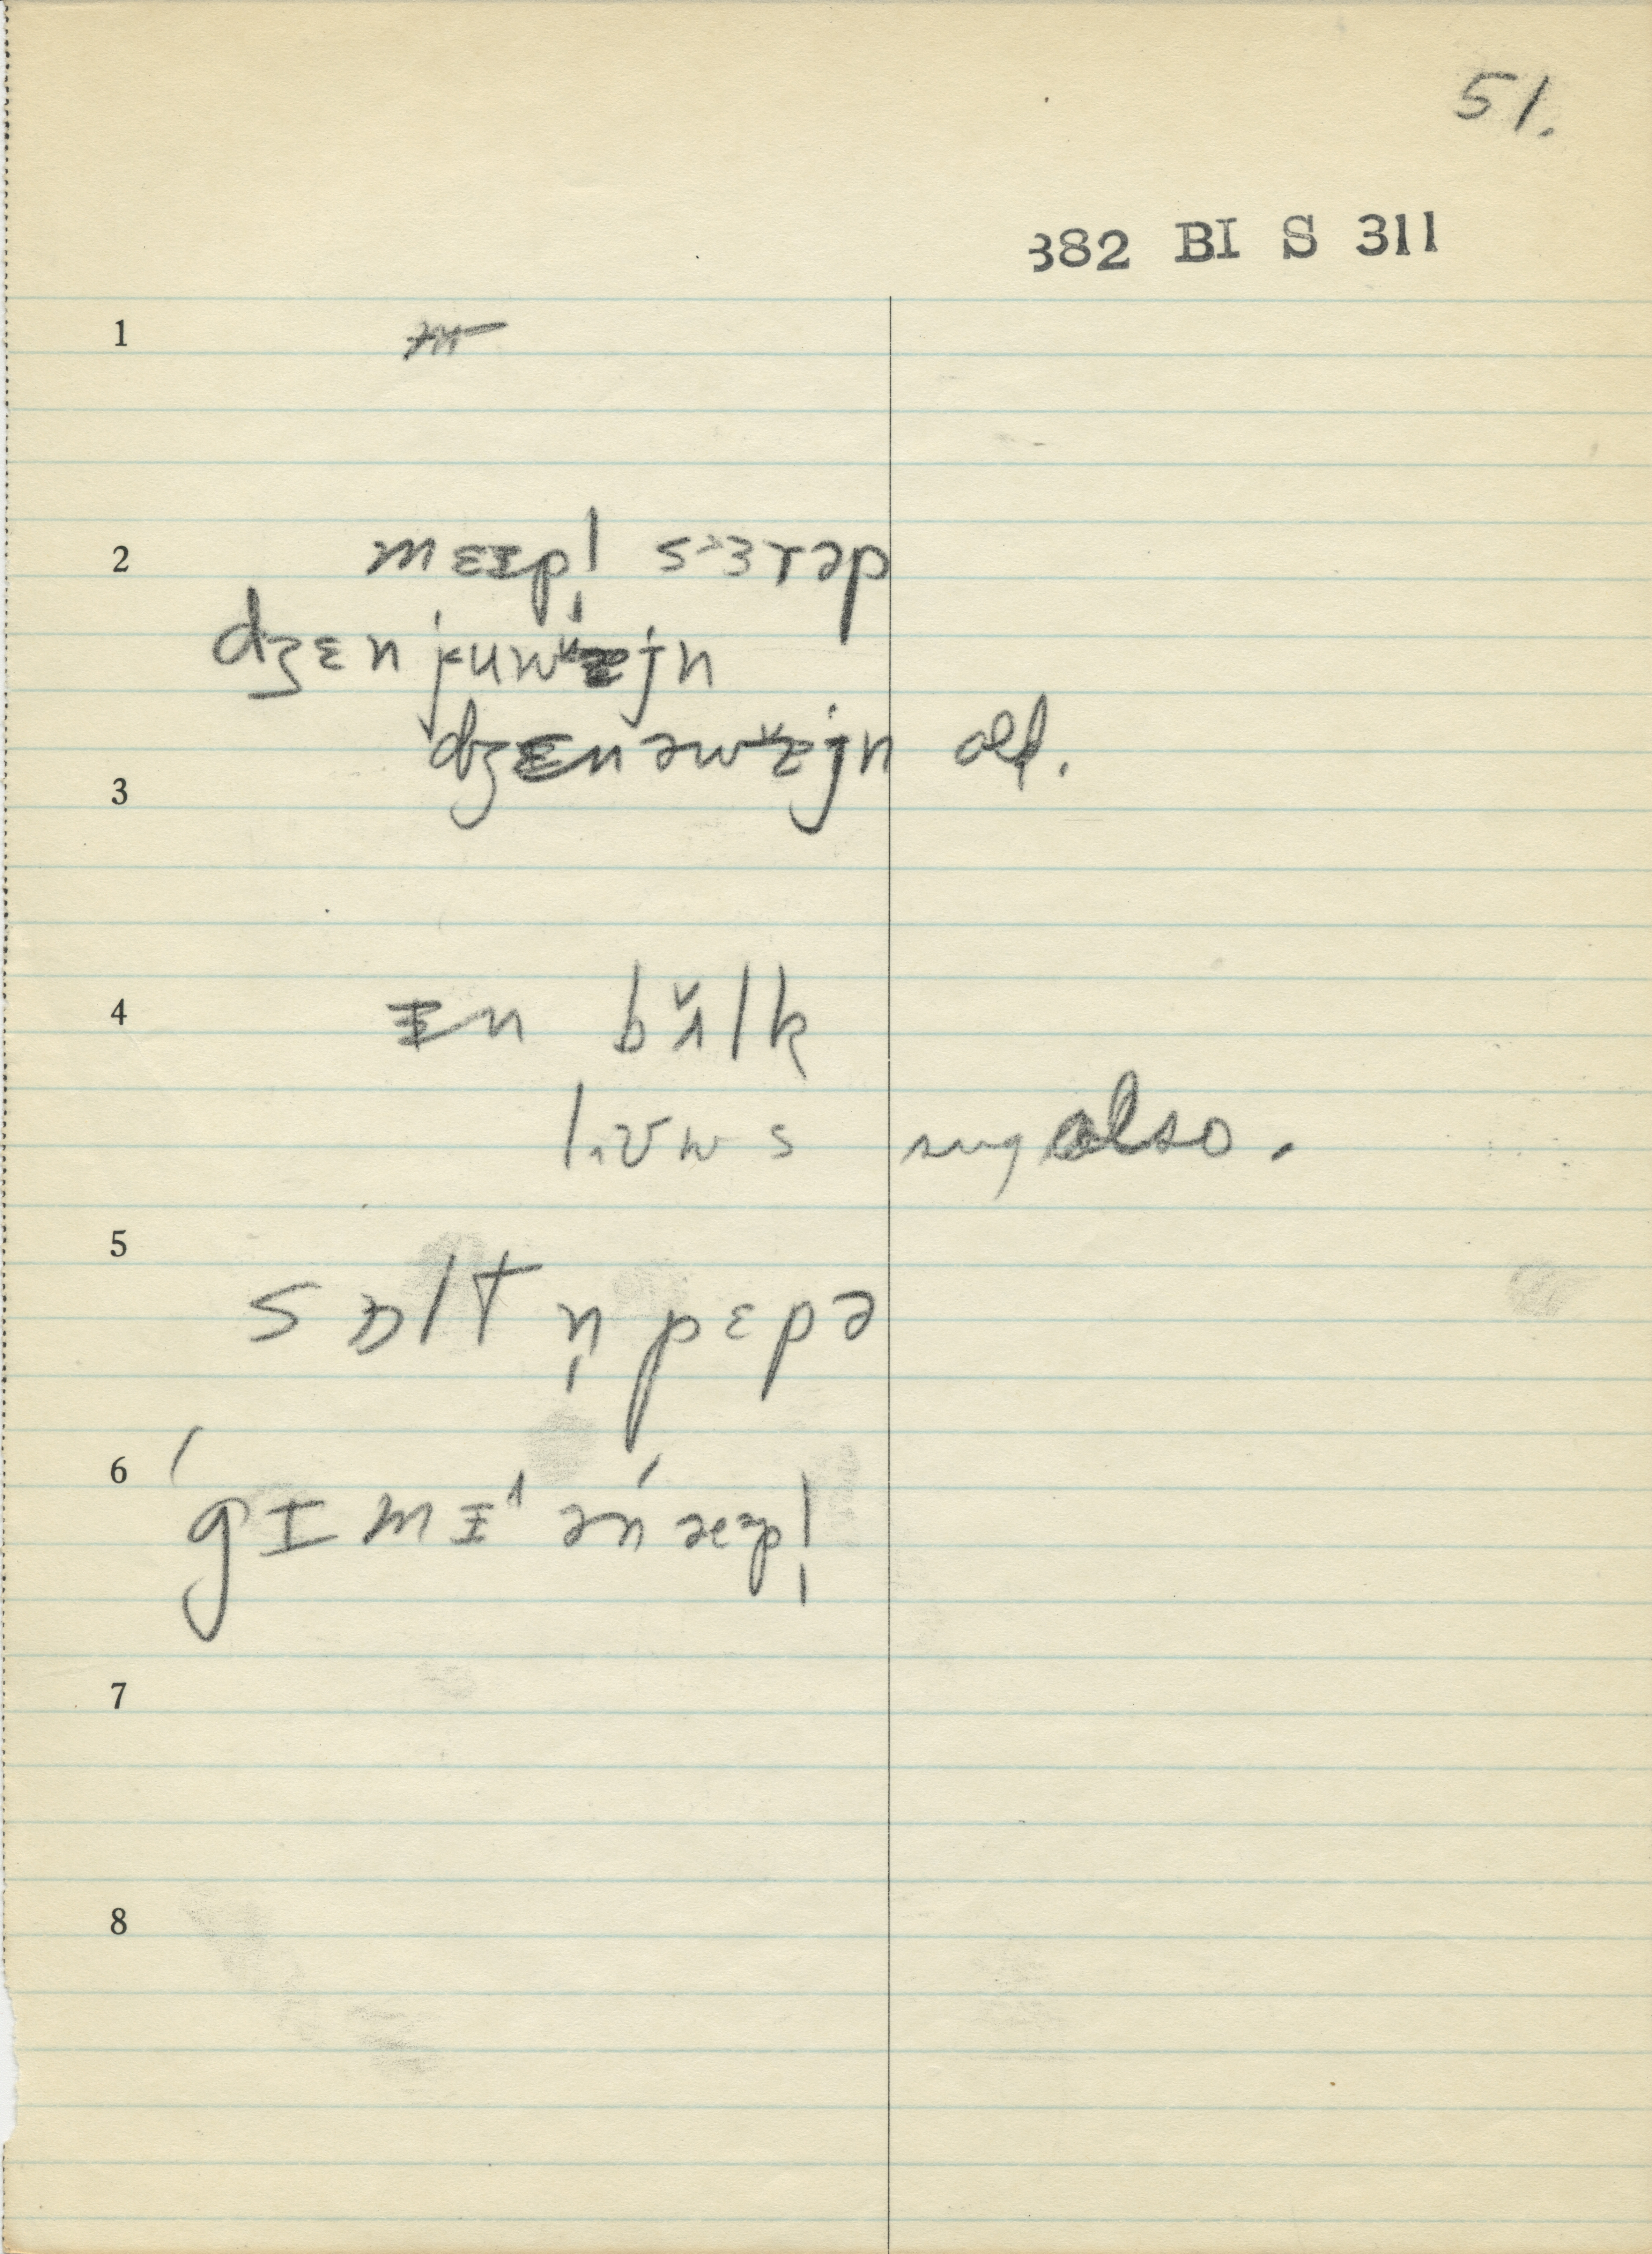 51.
382 BI S 311
1
2 mɛɪpl̩ sɜrəp
dʒɛnjuwᵻjn
3 dʒɛnəwᵻjn old.
4 ɪn bʌ̌lk
lʊws sug also.
5 sɒltn̩pɛpə
6 ˈgɪmɪ ən æpl̩
7
8